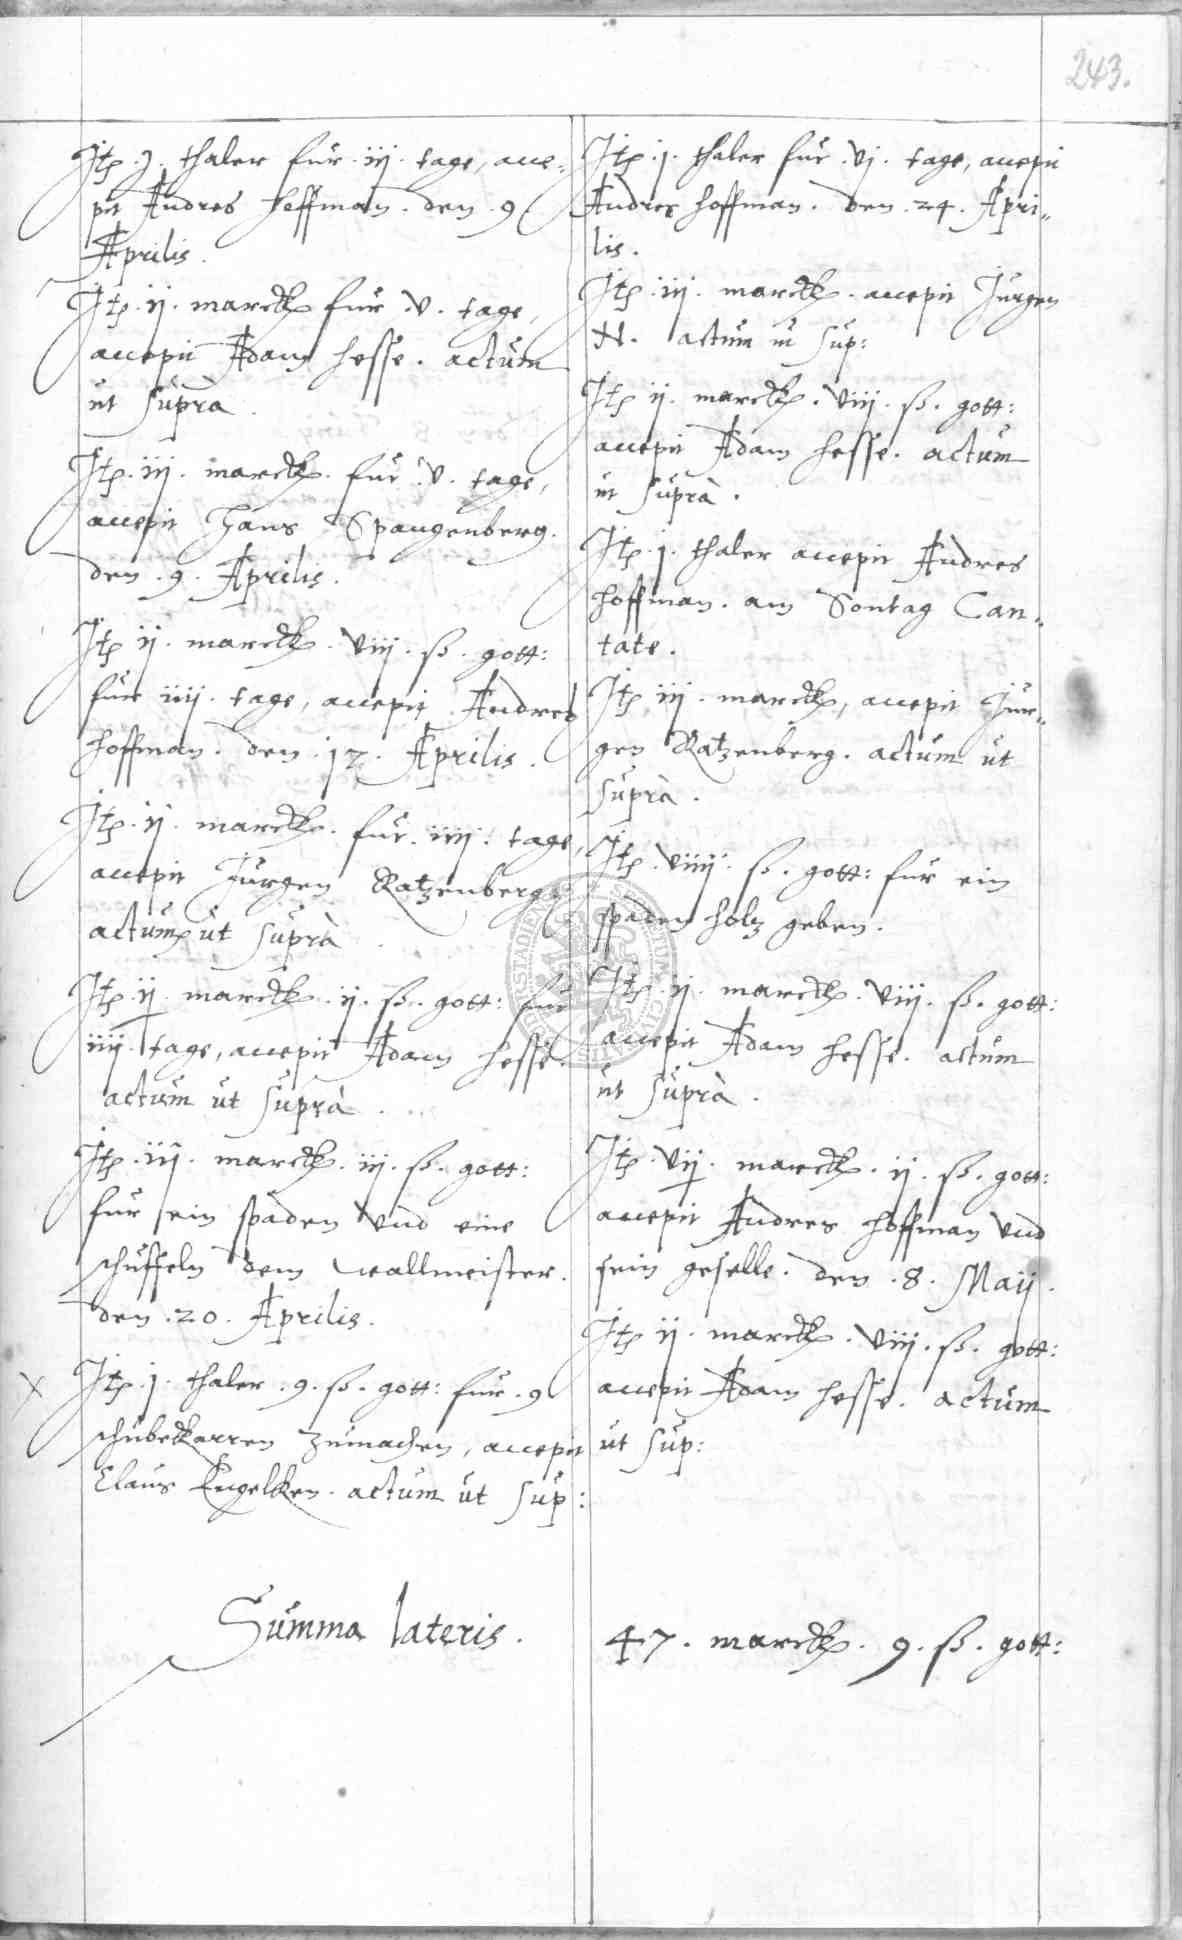 243.
Itp .j. thaler für .iij. tage, acce-
pit Andres hoffman. den .9
Aprilis.
Itp .ij. marck für .v. tage,
accepit Adam hesse. actum
ut suprà.
Itp .iij. marck. für .v. tage,
accepit Hans Spangenberg.
den .9. Aprilis.
Itp ij. marck. viij. ß. gott:
für iiij. tage, accepit Andres
hoffman. den .17. Aprilis.
Itp .ij. marck. für .iiij. tage,
accepit Jürgen Ratzenberg
actum ut suprà.
Itp ij. marck .ij. ß. gott: für
iiij. tage, accepit Adam hesse.
actum ut suprà.
Itp .iij. marck. iij. ß. gott:
für ein spaden vnd eine
schüffeln dem wallmeister.
den .20. Aprilis.
Itp .j. thaler .9. ß. gott: für .9
schubekarren zumachen, accepit
Claus Engelken. actum ut sup:
Itp .j. thaler für .vj. tage, accepit
Andres hoffman. den .24. Apri-
lis.
Itp .iij. marck. accepit Jürgen
N. actum ut sup:
Itp ij. marck. viij. ß. gott:
accepit Adam hesse. actum
ut suprà.
Itp .j. thaler accepit Andres
hoffman. am Sontag Can-
tate.
Itp .iij. marck, accepit Jür-
gen Ratzenberg. actum ut
suprà.
Itp viiij. ß. gott: für ein
spaden holtz geben.
Itp .ij. marck. viij. ß. gott:
accepit Adam hesse. actum
ut suprà.
Itp. vij. marck. ij. ß. gott:
accepit Andres hoffman vnd
sein geselle. den .8. Maij.
Itp ij. marck. viij. ß. gott:
accepit Adam hesse. actum
ut sup:
Summa lateris. 47. marck. 9. ß. gott: